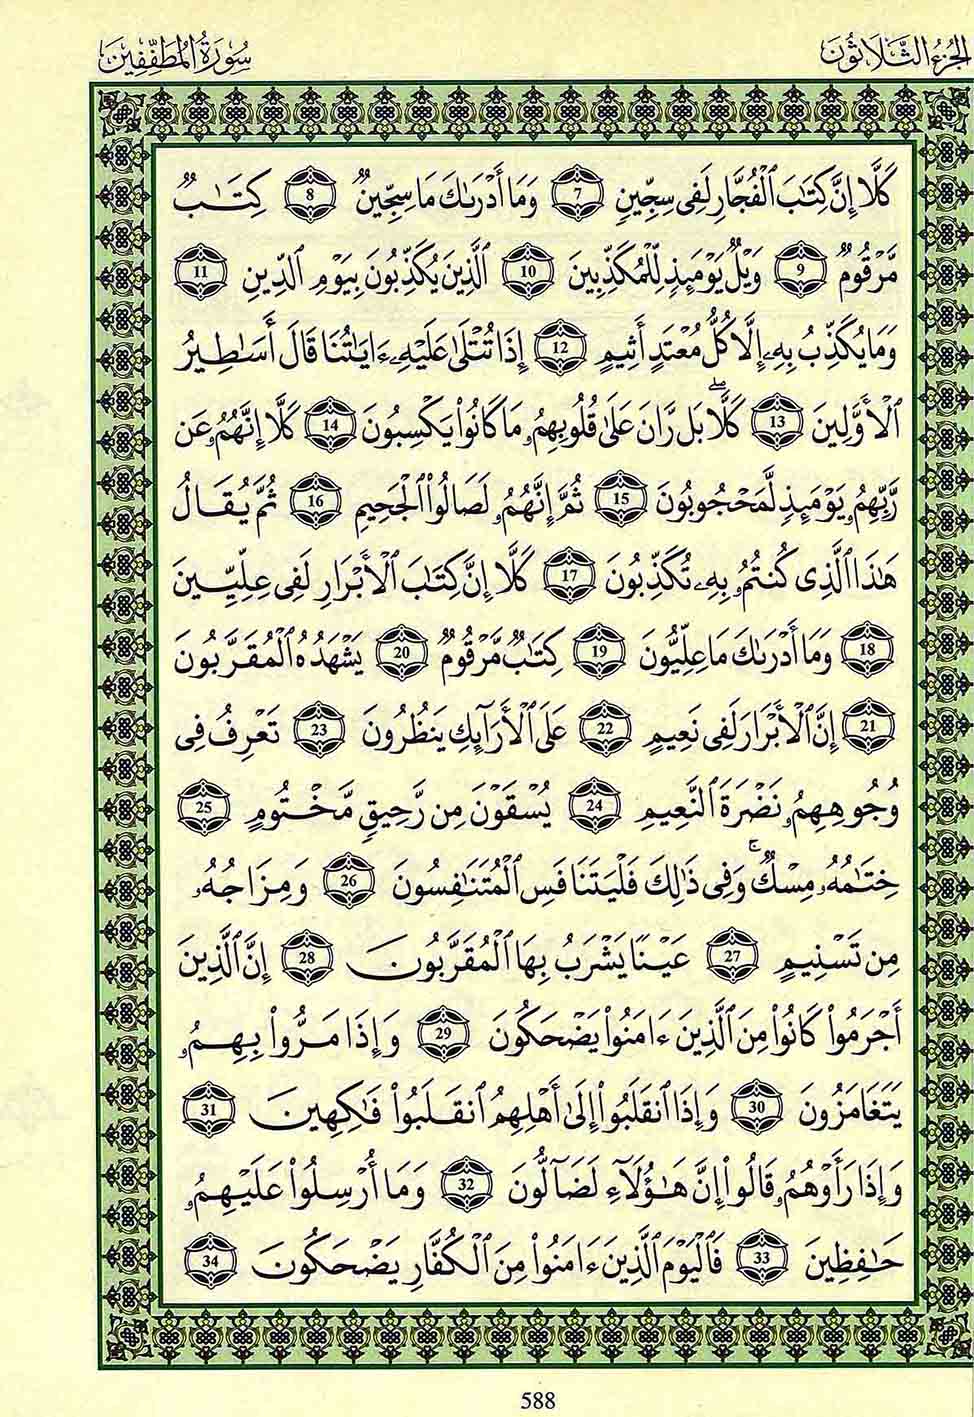 الجزء الثلاثون
سورة المطففين
كَلَّا إِنَّ كِتَٰبَ ٱلْفُجَّارِ لَفِى سِجِّينٍ 7 وَمَآ أَدْرَىٰكَ مَا سِجِّينٌ 8 كِتَٰبٌ
مَّرْقُومٌ 9 وَيْلٌ يَوْمَئِذٍ لِّلْمُكَذِّبِينَ 10 ٱلَّذِينَ يُكَذِّبُونَ بِيَوْمِ ٱلدِّينِ 11
وَمَا يُكَذِّبُ بِهِۦٓ إِلَّا كُلُّ مُعْتَدٍ أَثِيمٍ 12 إِذَا تُتْلَىٰ عَلَيْهِۦٓ ءَايَٰتُنَا قَالَ أَسَٰطِيرُ
ٱلْأَوَّلِينَ 13 كَلَّاۖ بَل رَّانَ عَلَىٰ قُلُوبِهِمُۥ مَا كَانُوا۟ يَكْسِبُونَ 14 كَلَّا إِنَّهُمُۥ عَن
رَّبِّهِمُۥ يَوْمَئِذٍ لَّمَحْجُوبُونَ 15 ثُمَّ إِنَّهُمُۥ لَصَالُوا۟ ٱلْجَحِيمِ 16 ثُمَّ يُقَالُ
هَٰذَا ٱلَّذِى كُنتُمُۥ بِهِۦ تُكَذِّبُونَ 17 كَلَّا إِنَّ كِتَٰبَ ٱلْأَبْرَارِ لَفِى عِلِّيِّينَ
18 وَمَآ أَدْرَىٰكَ مَا عِلِّيُّونَ 19 كِتَٰبٌ مَّرْقُومٌ 20 يَشْهَدُهُ ٱلْمُقَرَّبُونَ
21 إِنَّ ٱلْأَبْرَارَ لَفِى نَعِيمٍ 22 عَلَى ٱلْأَرَآئِكِ يَنظُرُونَ 23 تَعْرِفُ فِى
وُجُوهِهِمُۥ نَضْرَةَ ٱلنَّعِيمِ 24 يُسْقَوْنَ مِن رَّحِيقٍ مَّخْتُومٍ 25
خِتَٰمُهُۥ مِسْكٌۚ وَفِى ذَٰلِكَ فَلْيَتَنَافَسِ ٱلْمُتَنَٰفِسُونَ 26 وَمِزَاجُهُۥ
مِن تَسْنِيمٍ 27 عَيْنًا يَشْرَبُ بِهَا ٱلْمُقَرَّبُونَ 28 إِنَّ ٱلَّذِينَ
أَجْرَمُوا۟ كَانُوا۟ مِنَ ٱلَّذِينَ ءَامَنُوا۟ يَضْحَكُونَ 29 وَإِذَا مَرُّوا۟ بِهِمُۥ
يَتَغَامَزُونَ 30 وَإِذَا ٱنقَلَبُوٓا۟ إِلَىٰٓ أَهْلِهِمُ ٱنقَلَبُوا۟ فَٰكِهِينَ 31
وَإِذَا رَأَوْهُمُۥ قَالُوٓا۟ إِنَّ هَٰٓؤُلَآءِ لَضَآلُّونَ 32 وَمَآ أُرْسِلُوا۟ عَلَيْهِمُۥ
حَٰفِظِينَ 33 فَٱلْيَوْمَ ٱلَّذِينَ ءَامَنُوا۟ مِنَ ٱلْكُفَّارِ يَضْحَكُونَ 34
588